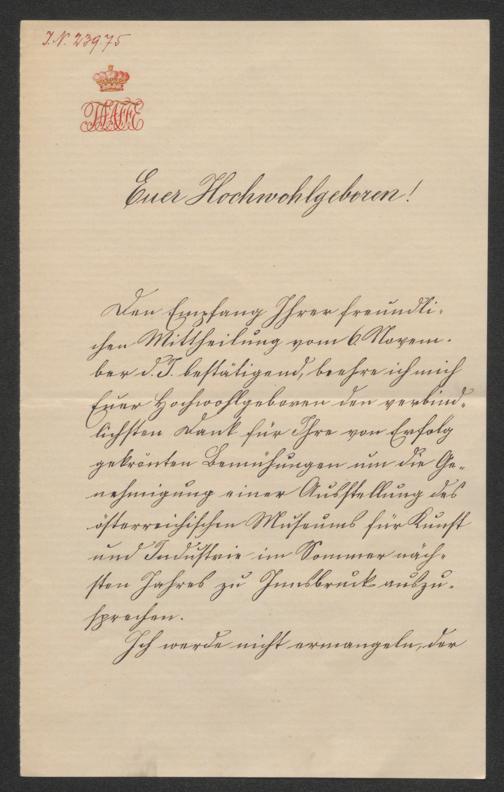 I.N. 23975
TAAFFE
Euer Hochwohlgeboren!
Den Empfang Ihrer freundli-
chen Mittheilung vom 6 Novem-
ber d. J. bestätigend, beehre ich mich
Euer Hochwohlgeboren den verbind-
lichsten Dank für Ihre von Erfolg
gekrönten Bemühungen um die Ge-
nehmigung einer Ausstellung des
österreichischen Museums für Kunst
und Industrie im Sommer näch-
sten Jahres zu Innsbruck auszu-
sprechen.
Ich werde nicht ermangeln, der